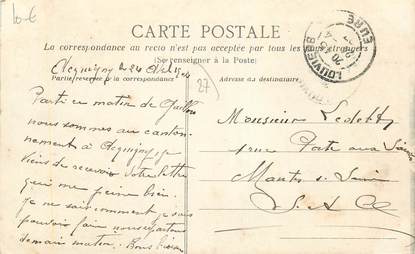 10-€
CARTE POSTALE
La correspondance au recto n'est pas acceptée par tous les pays étrangers
(Se renseigner à la Poste)
Partie réservée à la correspondance
Adresse du destinataire
LOUVIERS
EURE
27
Parti ce matin de Gaillon
nous sommes au canton-
nement à
viens de recevoir votre lettre
qui me peine bien.
Je ne sais comment je vais
pouvoir faire nous partons
demain matin. Bons
Monsieur
rue Porte aux Saints
Mantes s. Seine
S. & O.